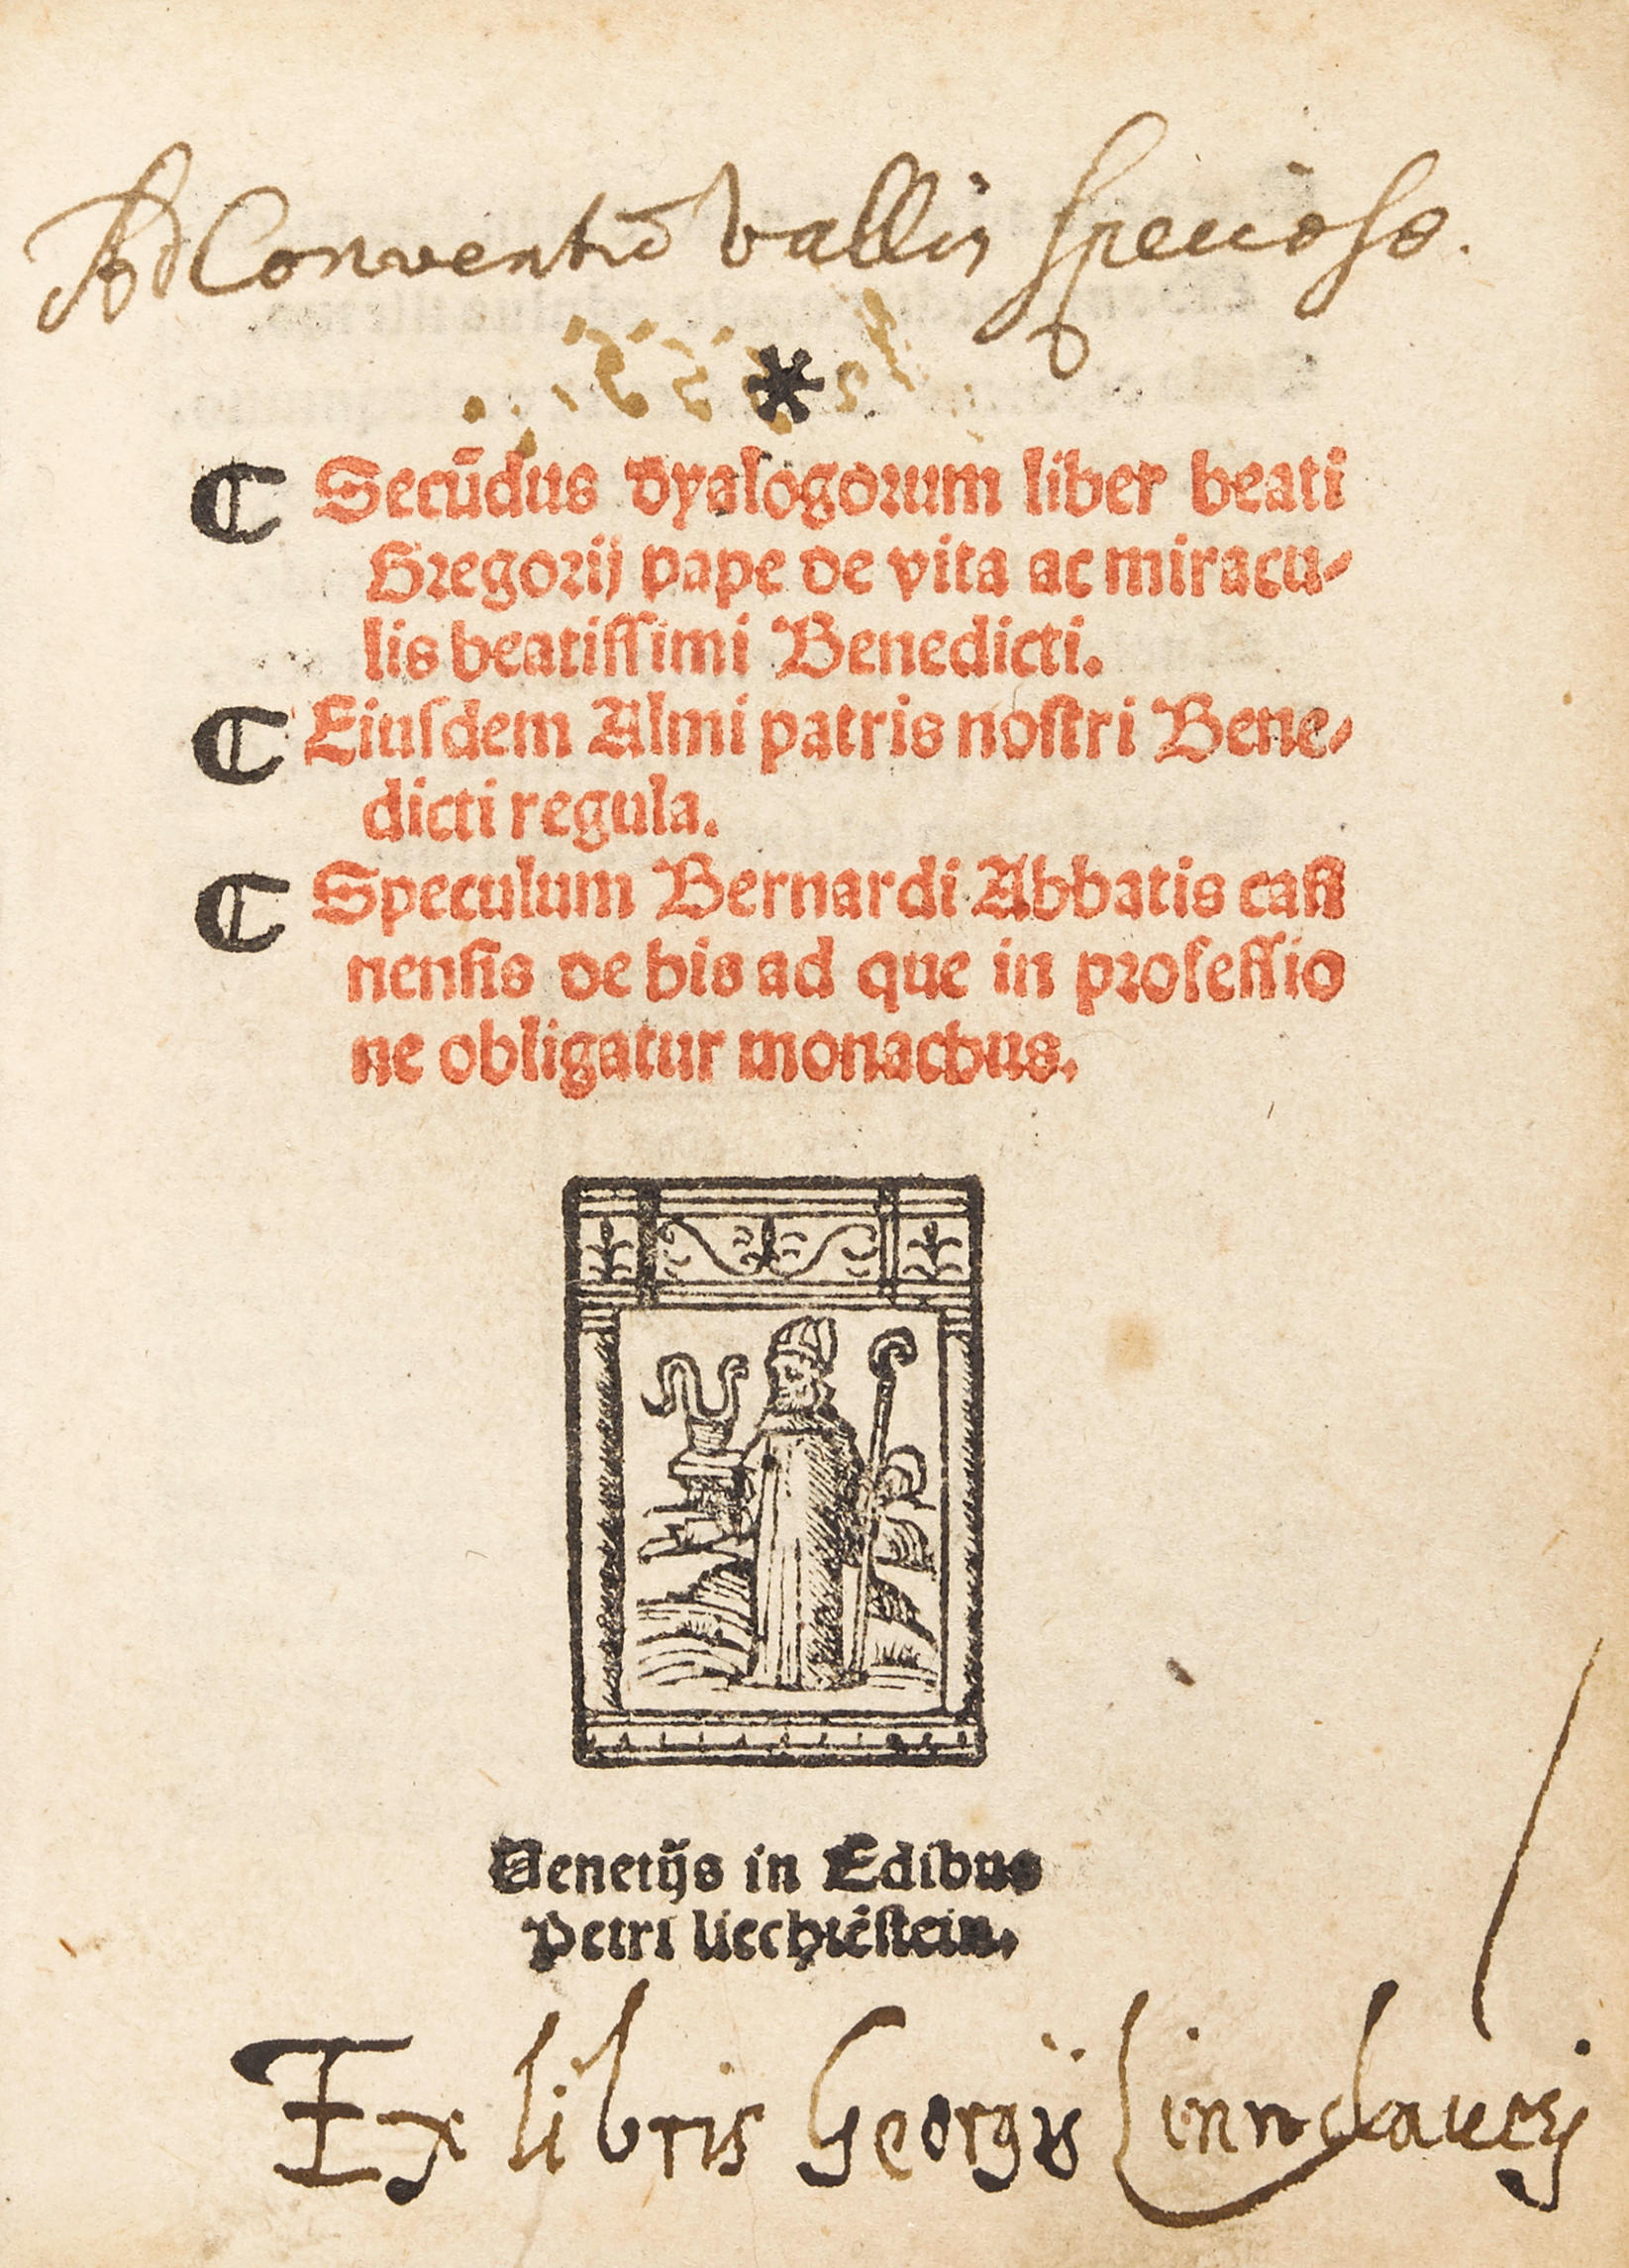 Ad Conventũ Vallis speciose.
*
Secũdus dyalogorum liber beati
Gregorij pape de vita ac miracu-
lis beatissimi Benedicti.
Eiusdem Almi patris nostri Bene-
dicti regula.
Speculum Bernardi Abbatis casi
nensis de his ad que in professio
ne obligatur monachus.
Venetijs in Edibus
Petri liechtẽstein.
Ex libris Georgij